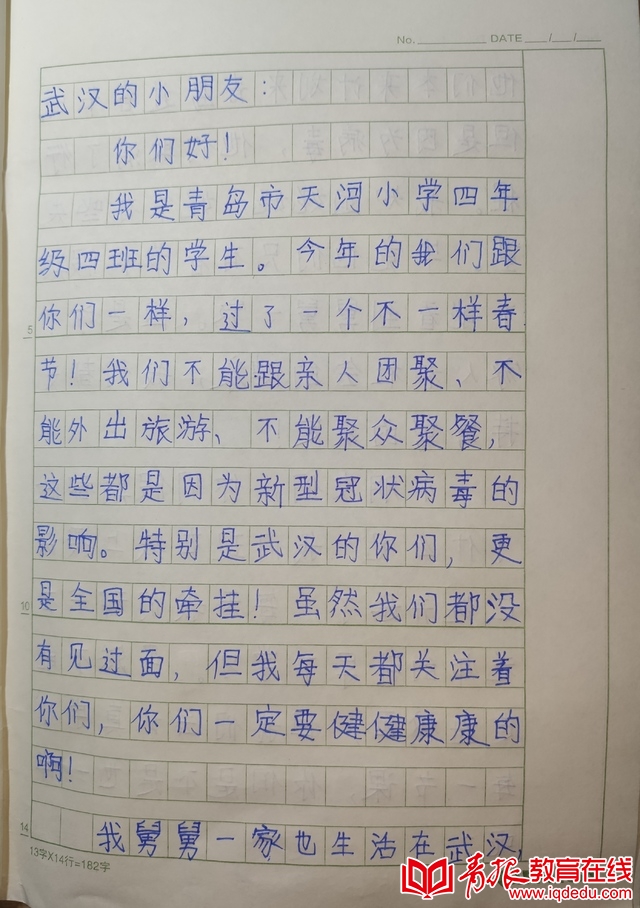 No. DATE / /
武汉的小朋友：
你们好！
我是青岛市天河小学四年
级四班的学生。今年的我们跟
你们一样，过了一个不一样春
节！我们不能跟亲人团聚、不
能外出旅游、不能聚众聚餐，
这些都是因为新型冠状病毒的
影响。特别是武汉的你们，更
是全国的牵挂！虽然我们都没
有见过面，但我每天都关注着
你们，你们一定要健健康康的
啊！
我舅舅一家也生活在武汉，
5
10
14
13字X14行=182字
青报教育在线
www.iqdedu.com